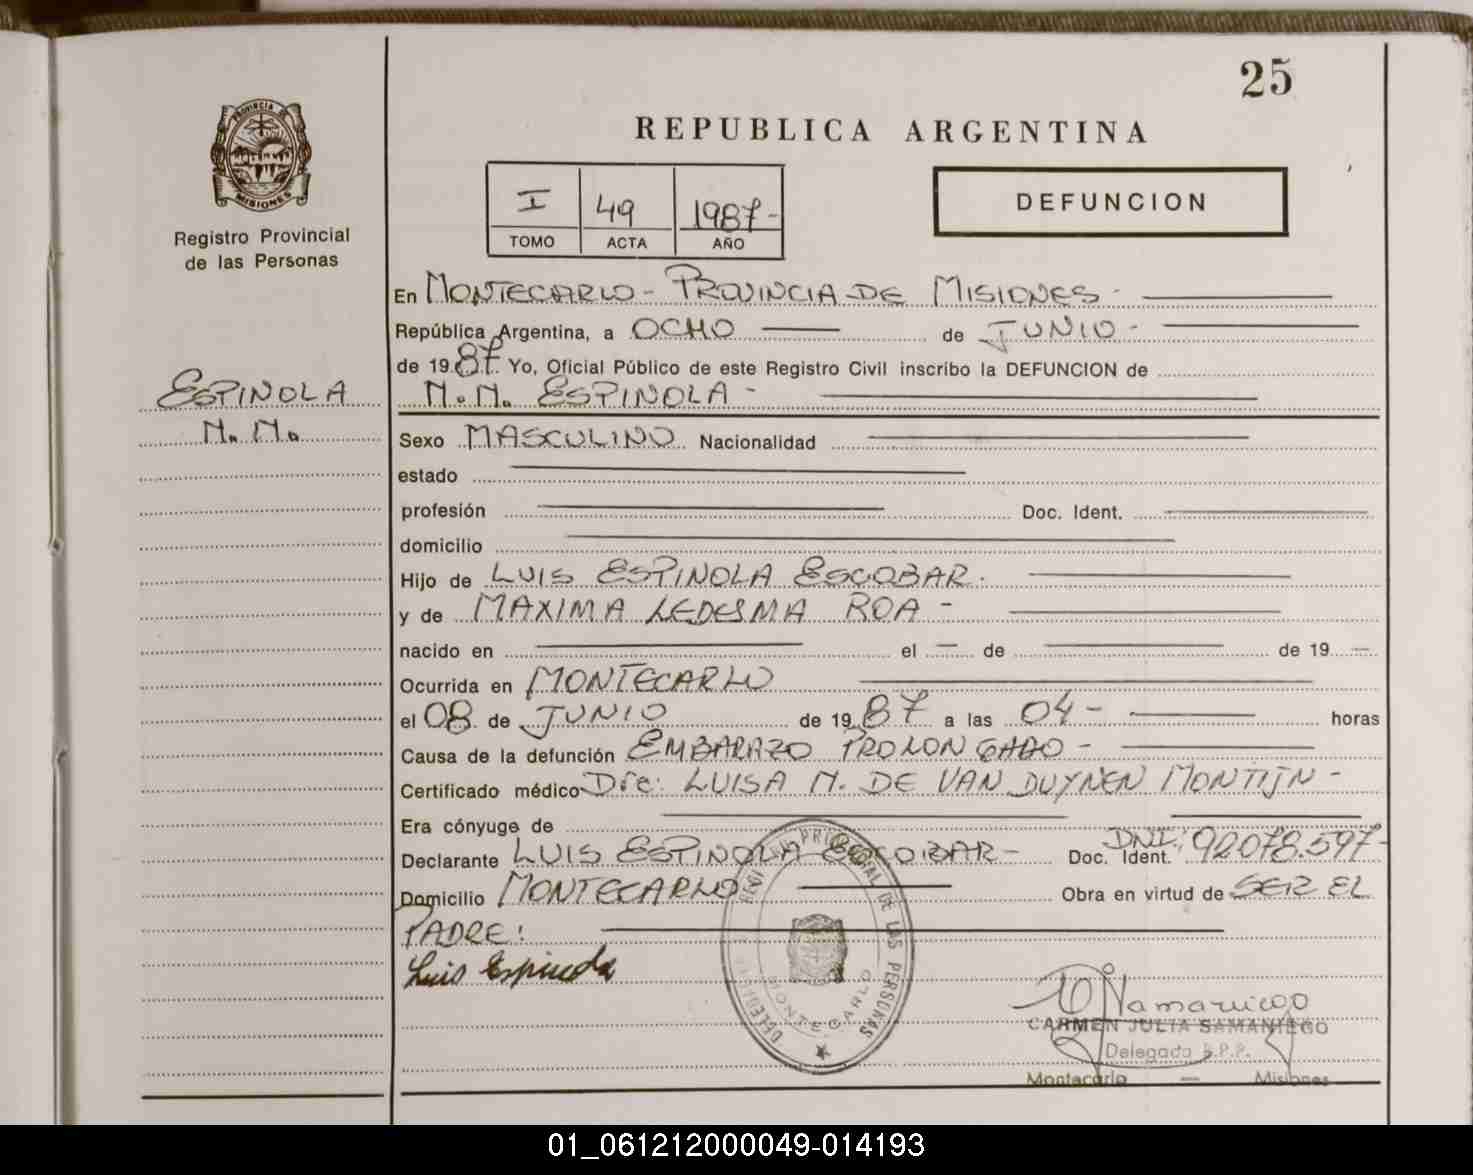 25
PROVINCIA DE
MISIONES
Registro Provincial
de las Personas
REPUBLICA ARGENTINA
I 49 1987-
TOMO ACTA AÑO
DEFUNCION
En MONTECARLO - PROVINCIA DE MISIONES -
República Argentina, a OCHO de JUNIO -
de 1987. Yo, Oficial Público de este Registro Civil inscribo la DEFUNCION de
ESPINOLA
N.N.
N.N. ESPINOLA -
Sexo MASCULINO Nacionalidad
estado
profesión Doc. Ident.
domicilio
Hijo de LUIS ESPINOLA ESCOBAR.
y de MAXIMA LEDESMA ROA -
nacido en el — de de 19 —
Ocurrida en MONTECARLO
el 08 de JUNIO de 1987 a las 04 - horas
Causa de la defunción EMBARAZO PROLONGADO -
Certificado médico Dra: LUISA M. DE VAN DUYNEN MONTIJN -
Era cónyuge de
Declarante LUIS ESPINOLA ESCOBAR - Doc. Ident. DNI: 92078.597-
Domicilio MONTECARLO Obra en virtud de SER EL
PADRE:
Luis Espinola
DE LAS PERSONAS
MONTECARLO
CARMEN JULIA SAMANIEGO
Delegada R.P.P.
Montecarlo — Misiones
01_061212000049-014193